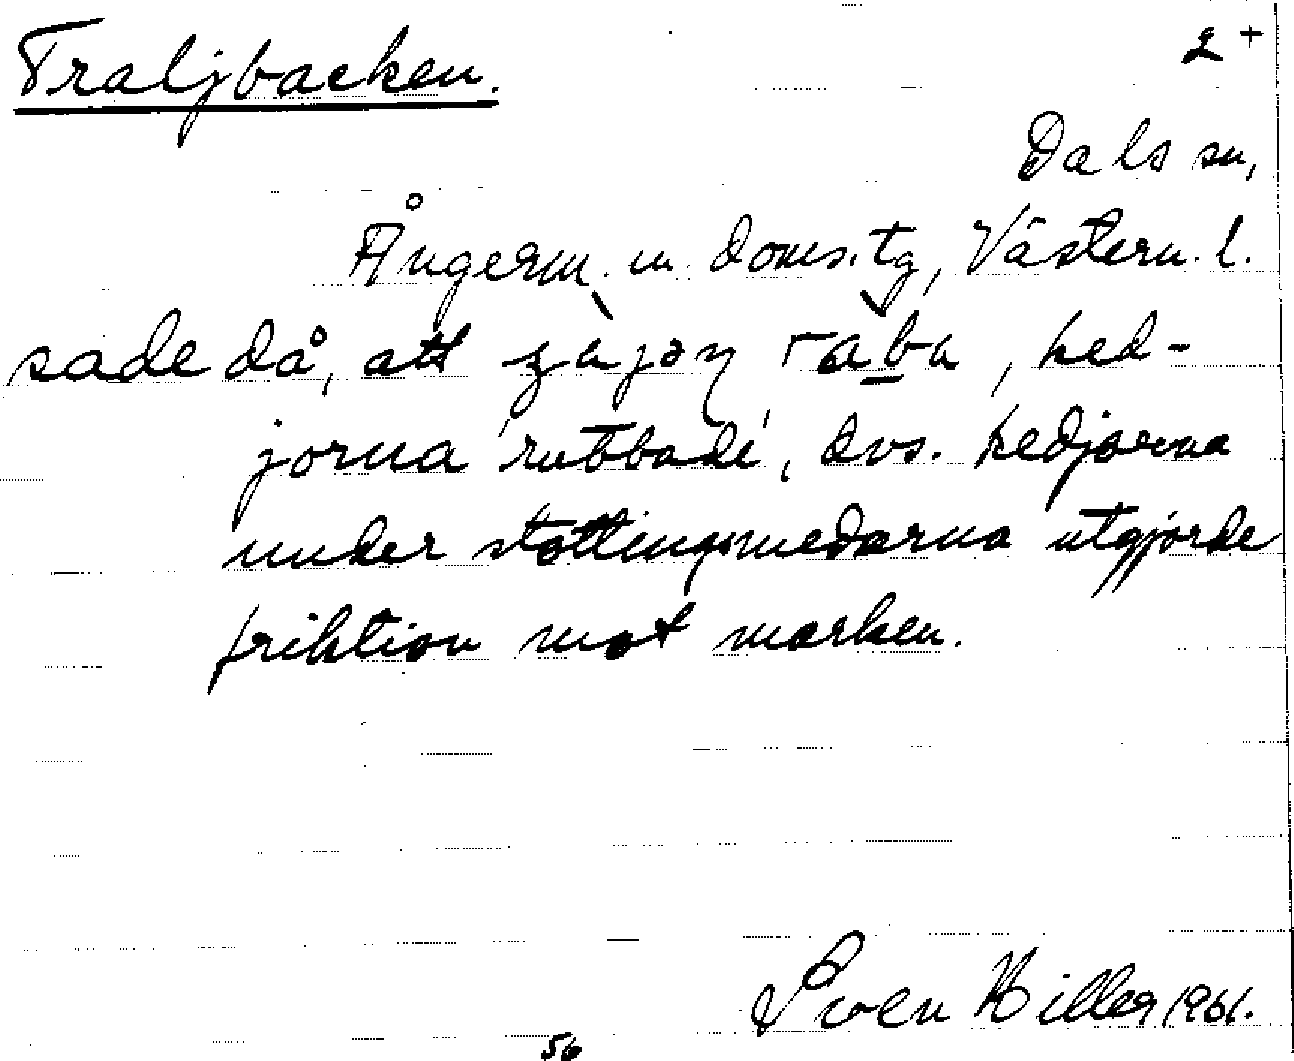 Traljbacken.
2+
Dals sn,
Ångerm. n. doms.tg, Västern. l.
sade då, att raba, ked-
jorna 'rubbade', dvs. kedjorna
under stöttingsmedarna utgjorde
friktion mot marken.
Sven Hiller 1961.
56